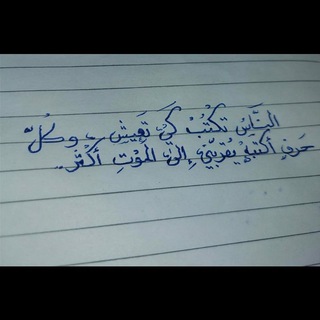 النَّاسُ تَكْتُبُ كَيْ تَعِيشَ ، وَكُلُّ
حَرفٍ أكتبهُ يُقربُنِي إلىَ المَوْتِ أكْثر ..